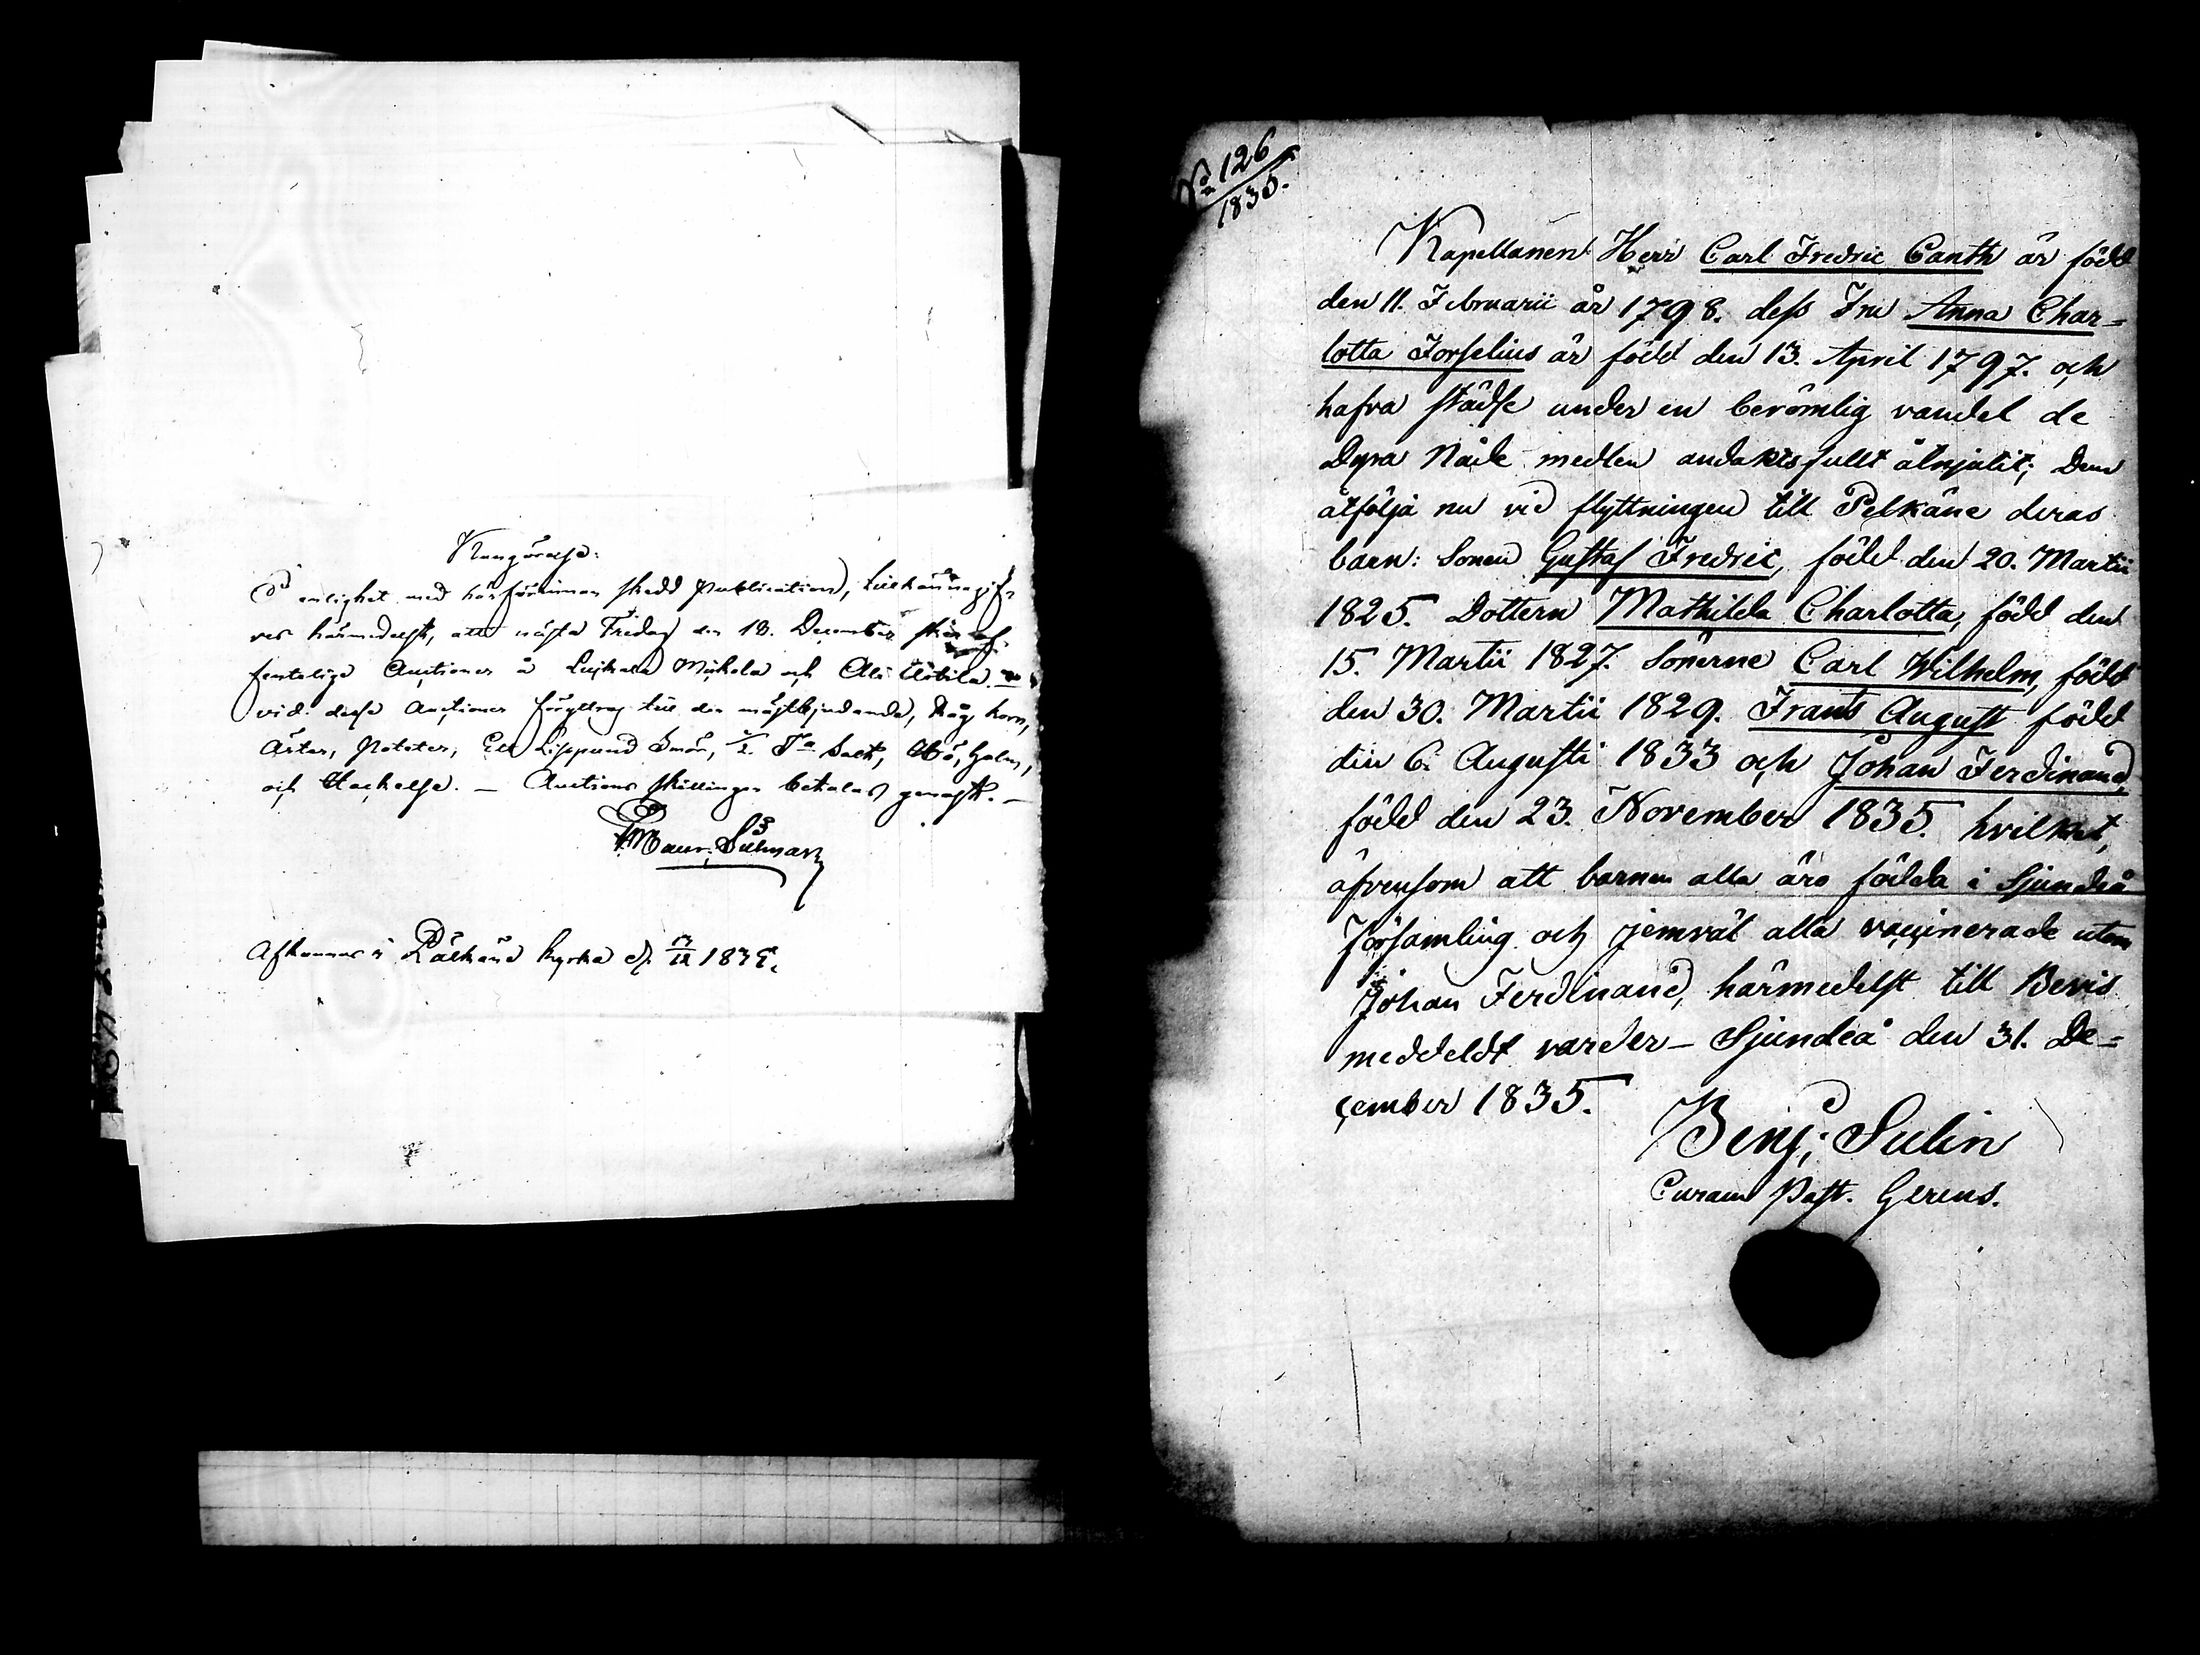 Kungörelse.
I enlighet med härförinnan skedd publication, tillkännagif-
ves härmedelst, att nästa Fredag den 18. December
fentelige Auctioner å Luikala Mickola och Ali
vid desse Auctioner försäljes till den mästbjudande, Råg korn,
Ärter, potater, Ett Lispund Smör, 1/2 Ta Salt, Hö, halm,
och Hackelse. — Auctions skillingen betalas genast. —
Afkunnas i Pälkäne kyrka d. 13/12 1835.
No 126
1835.
Kapellanen Herr Carl Fredric Canth är född
den 11. Februarii år 1798. dess Fru Anna Char=
lotta Forselius är född den 13. April 1797. och
hafva städse under en berömlig vandel de
Dyra Nåde medlen andaktsfullt åtnjutit; Dem
åtfölja nu vid flyttningen till Pelkäne deras
barn: Sonen Gustaf Fredric, född den 20. Martii
1825. Dottern Mathilda Charlotta, född den
15. Martii 1827. Sönerne Carl Wilhelm, född
den 30. Martii 1829. Frants August född
den 6. Augusti 1833 och Johan Ferdinand,
född den 23. November 1835. hvilket,
äfvensom att barnen alla äro födda i Sjundeå
Församling och jemväl alla vaccinerade utom
Johan Ferdinand, härmedelst till Bevis
meddeldt varder — Sjundeå den 31. De=
cember 1835.
Benj: Sulin
Curam Past. Gerens.